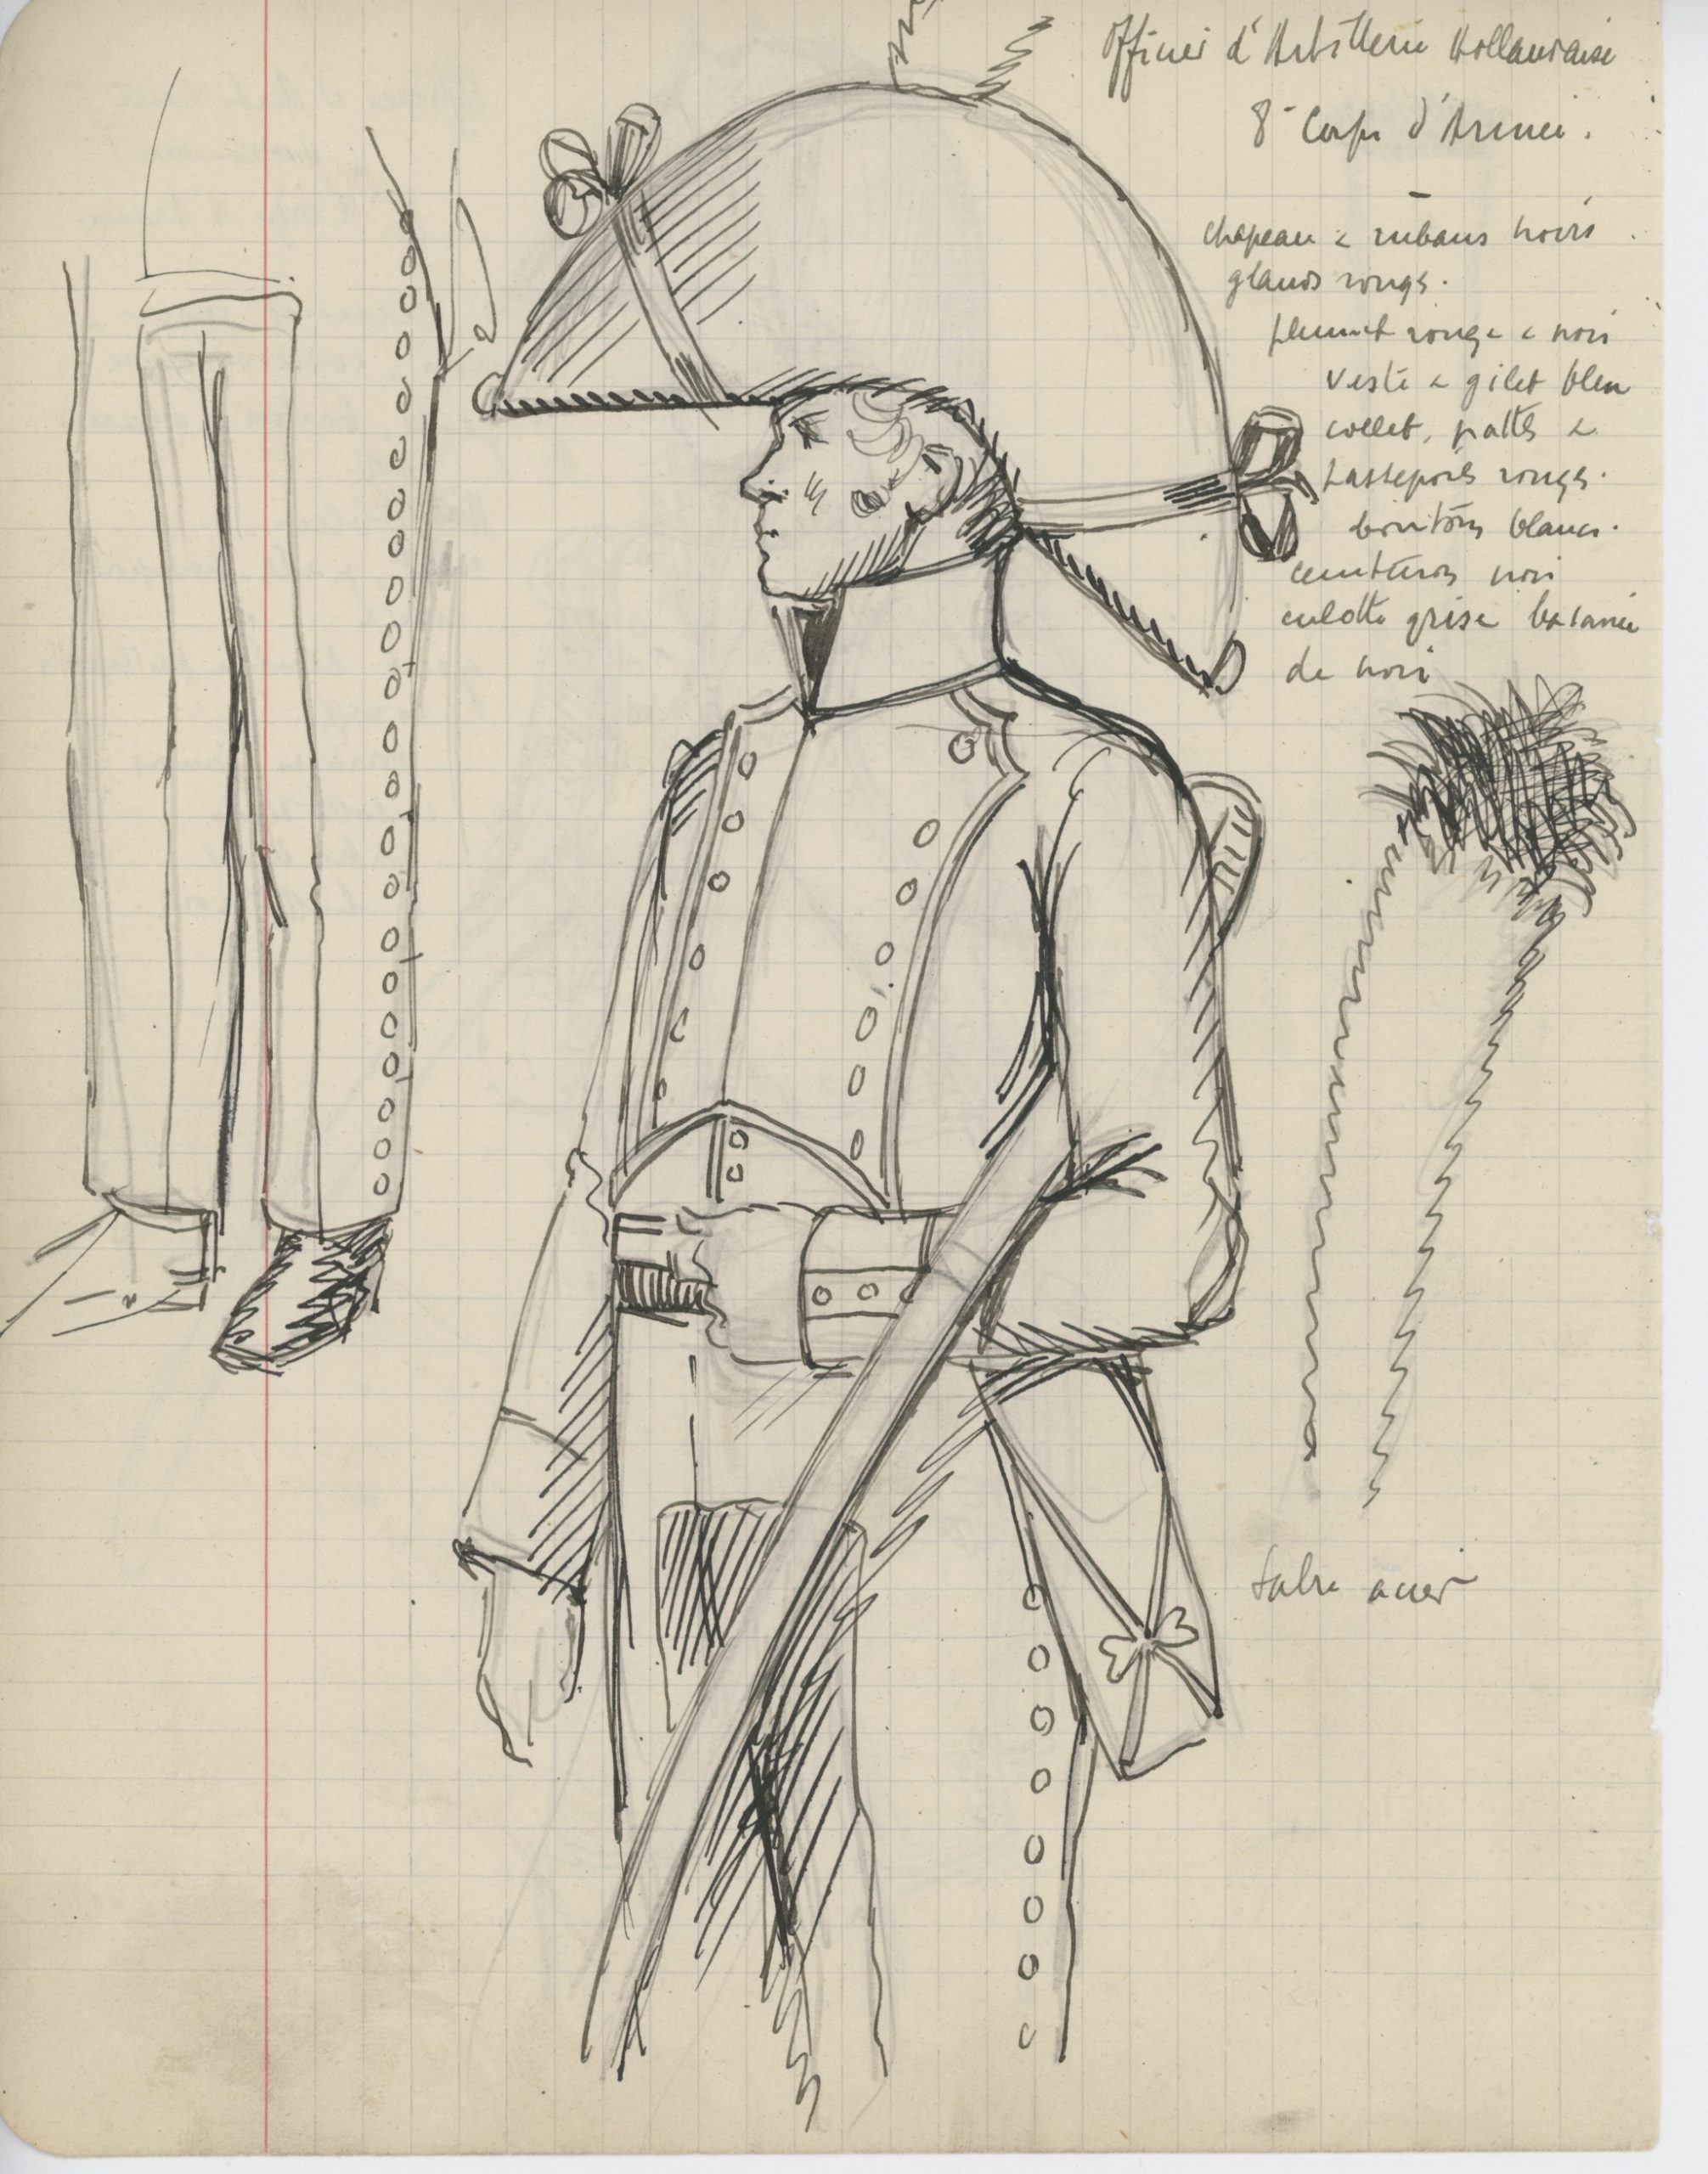 Officier d'Artillerie Hollandaise
8e Corps d'Armée.
chapeau & rubans noirs
glands rouges.
plumet rouge & noir
veste & gilet bleu
collet, pattes &
passepoils rouges.
boutons blancs.
ceinturon noir
culotte grise basanée
de noir
Sabre acier